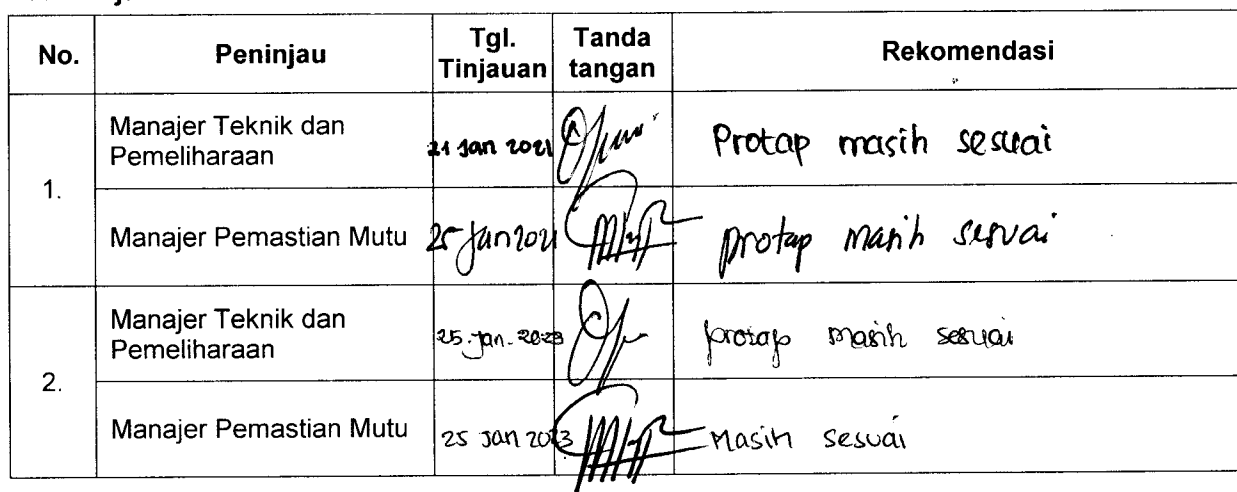 No. Peninjau Tgl. Tinjauan Tanda tangan Rekomendasi
1.
Manajer Teknik dan Pemeliharaan 21 Jan 2021 Protap masih sesuai
Manajer Pemastian Mutu 25 Jan 2021 protap masih sesuai
2.
Manajer Teknik dan Pemeliharaan 25. Jan. 2023 protap masih sesuai
Manajer Pemastian Mutu 25 Jan 2023 Masih sesuai